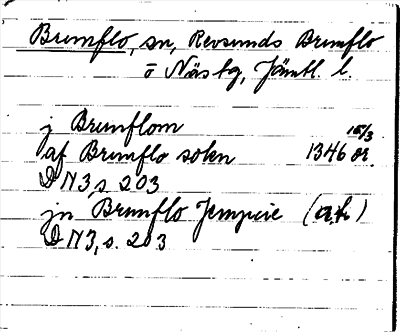 Brunflo, sn, Revsunds Brunflo
o Näs tg, Jämtl. l.
j Brunflom
af Brunflo sokn 1346 15/3 or.
DN 3 s. 203
jn Brunflo (a.b)
DN 3, s. 203